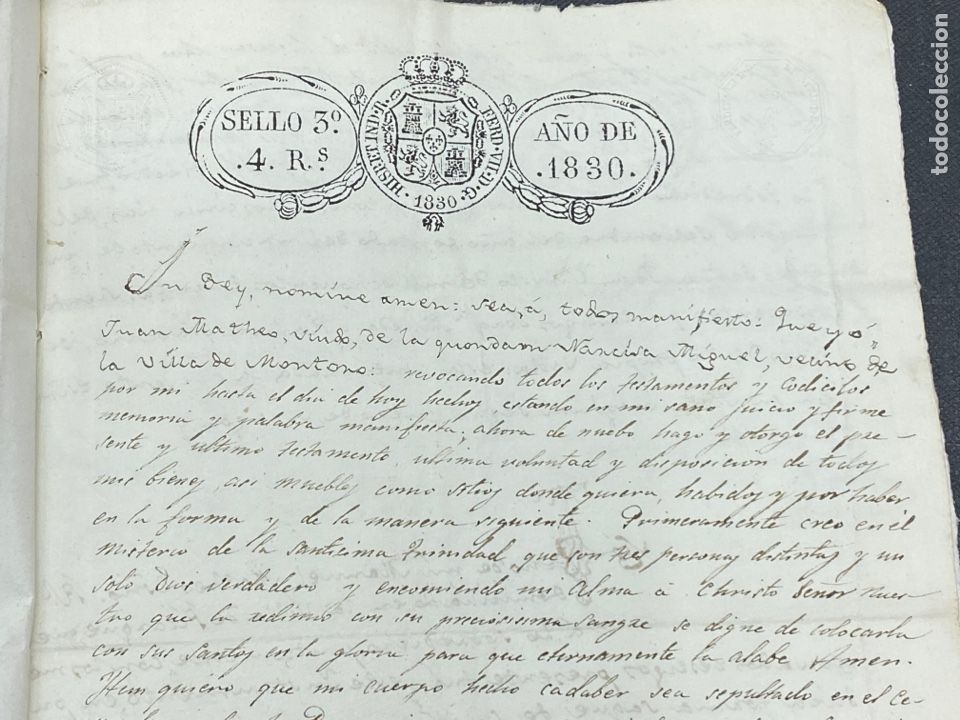 SELLO 3º.
.4. Rs.
HISP.ET IND.R.
FERD.VII.D.G.
.1830.
AÑO DE
.1830.
In Dey, nomine amen: sea, á, todos manifiesto: Que yó
Juan Matheo, viudo, de la quondam Narcisa Miguel, vecino de
la Villa de Montono: revocando todos los testamentos y Codicilos
por mi hasta el dia de hoy hechos, estando en mi sano juicio y firme
memoria y palabra manifiesta, ahora de nuebo hago y otorgo el pre-
sente y ultimo testamento, ultima voluntad y disposicion de todos
mis bienes, asi muebles como sitios donde quiera, habidos y por haber
en la forma y de la manera siguiente. Primeramente creo en él
misterio de la santicima trinidad que son tres personas distintas y un
solo Dios verdadero y encomiendo mi Alma à Christo Señor nues-
tro que la redimio con su preciosisima sangre se digne de colocarla
con sus santos en la gloria para que eternamente la alabe Amen.
Item quiero que mi cuerpo hecho cadaber sea sepultado en el ce-
todocoleccion
todocoleccion.net